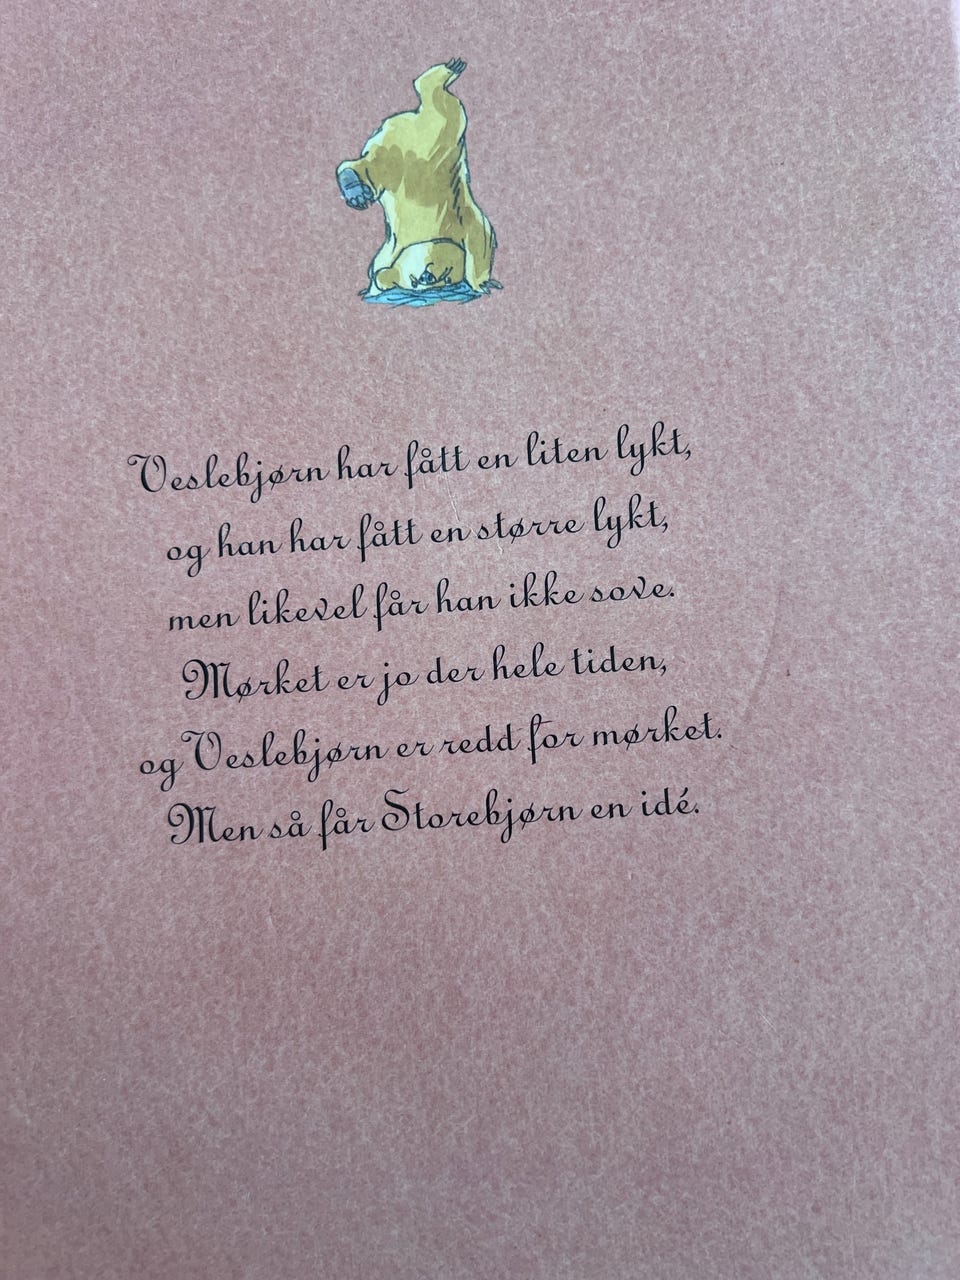 Veslebjørn har fått en liten lykt,
og han har fått en større lykt,
men likevel får han ikke sove.
Mørket er jo der hele tiden,
og Veslebjørn er redd for mørket.
Men så får Storebjørn en idé.